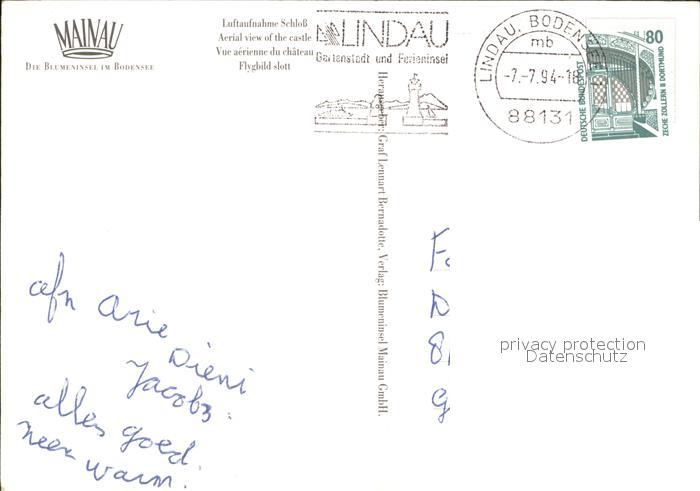 MAINAU
DIE BLUMENINSEL IM BODENSEE
Luftaufnahme Schloß
Aerial view of the castle
Vue aérienne du château
Flygbild slott
LINDAU
Gartenstadt und Ferieninsel
LINDAU, BODENSEE
mb
-7.-7.94-18
88131
80
DEUTSCHE BUNDESPOST
ZECHE ZOLLERN II DORTMUND
Herausgeber: Graf Lennart Bernadotte, Verlag: Blumeninsel Mainau GmbH.
afn Arie
Dieni
Jacobs.
alles goed.
heer warm.
F
D
8
G
privacy protection
Datenschutz